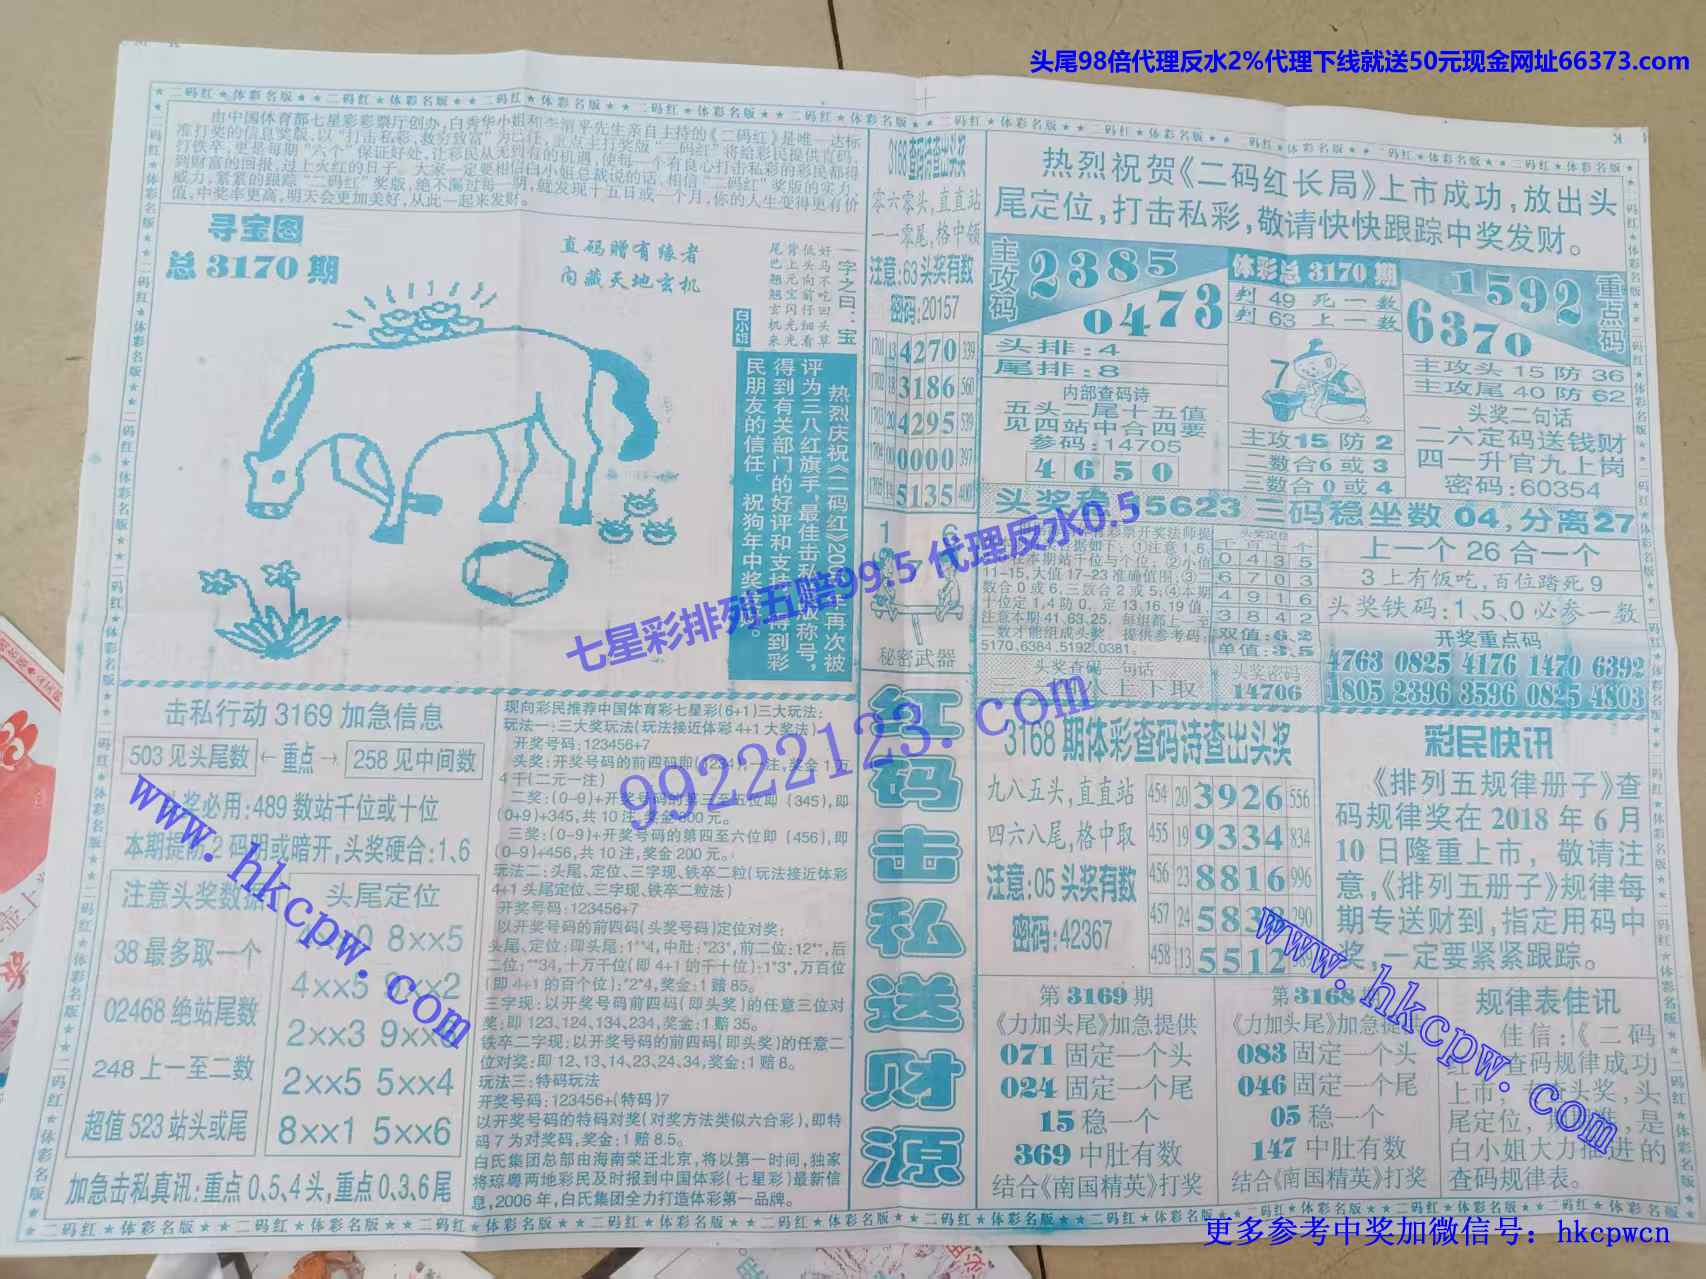 头尾98倍代理反水2%代理下线就送50元现金网址66373.com
由中国体育部七星彩彩票厅创办,白秀华小姐和李渭平先生亲自主持的《二码红》是唯一达标
寻宝图
总3170期
直码赠有缘者
内藏天地玄机
一字之曰:宝
好马不吃回头草
低头向前仔细看
背上元宝闪光光
尾巴上翘玄机来
白小姐
热烈庆祝《二码红》20
年再次被
评为三八红旗手,最佳击私
版称号,
得到有关部门的好评和支持
得到彩
民朋友的信任。祝狗年中奖
3168查码诗查出头奖
零六零头,直直站
一一零尾,格中领
注意:63头奖有数
密码:20157
1701 13 4270 339
1702 18 3186 560
1703 20 4295 539
0000 397
5135
秘密武器
红码击私送财源
热烈祝贺《二码红长局》上市成功,放出头
尾定位,打击私彩,敬请快快跟踪中奖发财。
主攻码
2385
0473
体彩总3170期
判49死一数
判63上一数
1592
6370
重点码
头排:4
尾排:8
内部查码诗
五头二尾十五值
见四站中合四要
参码:14705
4650
7
主攻15防2
二数合6或3
三数合0或4
主攻头15防36
主攻尾40防62
头奖二句话
二六定码送钱财
四一升官九上岗
密码:60354
55623三码稳坐数04,分离27
11-15,大值17-23准确值围;③
数合0或6,三数合2或5;④本期
十位定1,4防0。定13,16,19值,
注意本期41,63,25,每组都上一至
二数才能组成头奖。提供参考码:
5170,6384,5192,0381。
头奖定位
千百十个
0435
6703
4916
3842
双值:6.2
单值:3.5
头奖查码一句话
头奖密码
14706
上一个26合一个
3上有饭吃,百位踏死9
头奖铁码:1、5、0必参一数
开奖重点码
4763 0825 4176 1470 6392
1805 2396 3596 0825 4803
七星彩排列五赔99.5代理反水0.5
99222123.com
击私行动3169加急信息
503见头尾数 ←重点→ 258见中间数
奖必用:489数站千位或十位
本期提防2码明或暗开,头奖硬合:1、6
注意头奖数据
38最多取一个
02468绝站尾数
248上一至二数
超值523站头或尾
头尾定位
0 8××5
4××5 9××2
2××3 9××
2××5 5××4
8××1 5××6
加急击私真讯:重点0、5、4头,重点0、3、6尾
www.hkcpw.com
现向彩民推荐中国体育彩七星彩(6+1)三大玩法:
玩法一:三大奖玩法(玩法接近体彩4+1大奖法)
开奖号码:123456+7
头奖:开奖号码的前四码即(1234),一注,奖金1万
4千(二元一注)
二奖:(0-9)+开奖号码的第三至五位即(345),即
(0+9)+345,共10注,奖金
00元。
三奖:(0-9)+开奖号码的第四至六位即(456),即
(0-9)+456,共10注,奖金200元。
玩法二:头尾、定位、三字现、铁卒二粒(玩法接近体彩
4+1头尾定位、三字现、铁卒二粒法)
开奖号码:123456+7
以开奖号码的前四码(头奖号码)定位对奖:
头尾、定位:即头尾:1**4,中肚:*23*,前二位:12**,后
二位:**34,十万千位(即4+1的千十位):1*3*,万百位
(即4+1的百个位):*2*4,奖金:1赔85。
三字现:以开奖号码前四码(即头奖)的任意三位对
奖;即123、124、134、234,奖金:1赔35。
铁卒二字现:以开奖号码的前四码(即头奖)的任意二
位对奖:即12、13、14、23、24、34,奖金:1赔8。
玩法三:特码玩法
开奖号码:123456+(特码)7
以开奖号码的特码对奖(对奖方法类似六合彩),即特
码7为对奖码,奖金:1赔8.5。
白氏集团总部由海南荣迁北京,将以第一时间,独家
将琼粤两地彩民及时报到中国体彩(七星彩)最新信
息,2006年,白氏集团全力打造体彩第一品牌。
3168期体彩查码诗查出头奖
九八五头,直直站
四六八尾,格中取
注意:05头奖有数
密码:42367
454 20 3926 556
455 19 9334 834
456 23 8816 996
457 24 583 290
458 13 5512
彩民快讯
《排列五规律册子》查
码规律奖在2018年6月
10日隆重上市,敬请注
意,《排列五册子》规律每
期专送财到,指定用码中
奖,一定要紧紧跟踪。
第3169期
《力加头尾》加急提供
071固定一个头
024固定一个尾
15稳一个
369中肚有数
结合《南国精英》打奖
第3168
《力加头尾》加急提供
083固定一个头
046固定一个尾
05稳一个
147中肚有数
结合《南国精英》打奖
规律表佳讯
佳信:《二码
查码规律成功
上市,
头奖,头
尾定位,
是
白小姐大力推进的
查码规律表。
www.hkcpw.com
二码红★体彩名版★★二码红★体彩名版
更多参考中奖加微信号:hkcpwcn